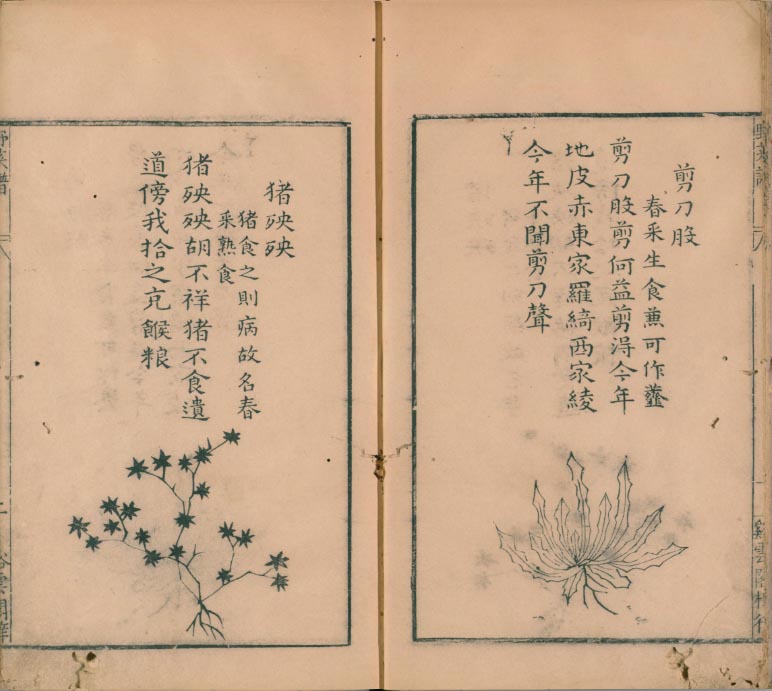 剪刀股
春采生食兼可作虀
剪刀股剪何益剪淂今年
地皮赤東家羅綺西家綾
今年不聞剪刀聲
猪殃殃
猪食之則病故名春
采熟食
猪殃殃胡不祥猪不食遺
道傍我拾之充餱粮
野菜譜